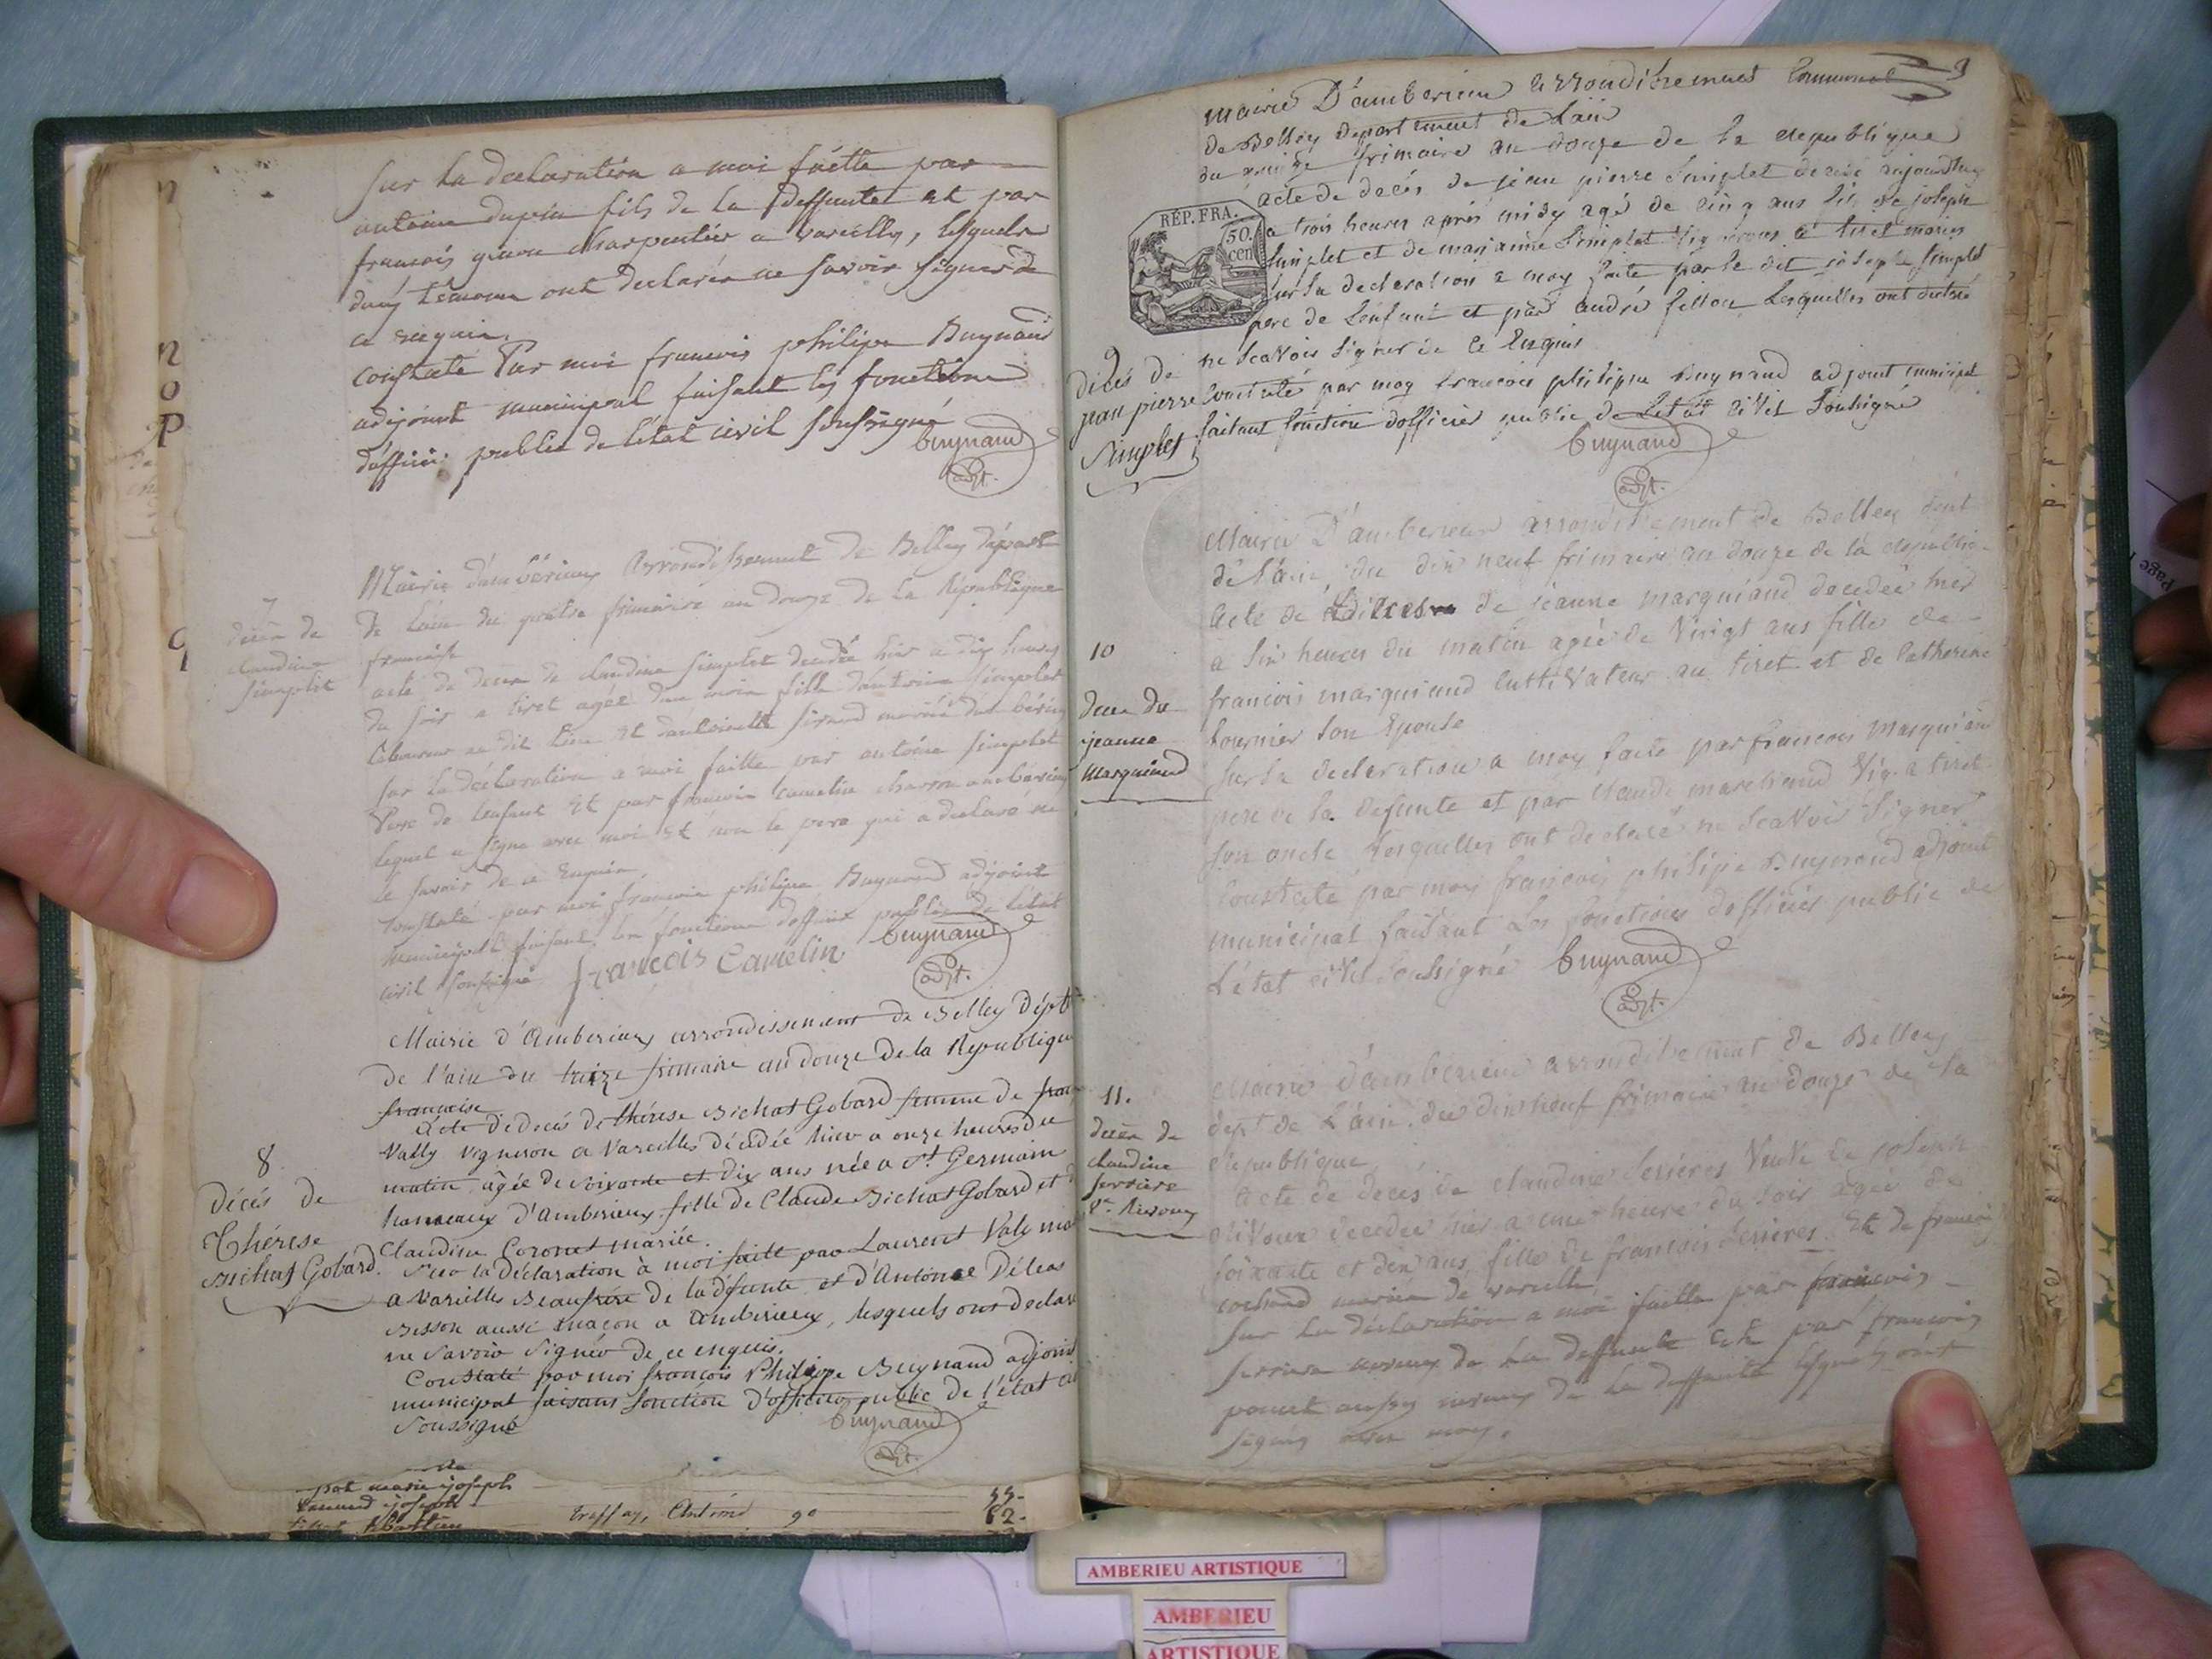 n
n
o
P
q
Sur la declaration a moi faitte par
antoine dupin fils de la deffuntet et par
francois charpentier a vareilles, lesquels
ont declarés ne savoir signer de
ce enquis.
constaté Par moi francois philipe Buynand
adejoint municipal faisant les fonctions
d'officier public de l'état civil soussigné
Buynand
adjt.
7
décès de
claudine
simplet
Mairie d'ambérieux arrondissement de Belley départ
de l'ain du quatre frimaire an douze de la République
francaise
acte de deces de claudine simplet decedée hier a dix heures
du soir a tiret agée d'un mois fille d'antoine simplet
laboureur au dit lieu et d'antoinette sirand mariés d'ambérieux
sur la declaration a moi faitte par antoine simplet
Pere de l'enfant et par francois camelin charron a ambérieux
lequel a signé avec moi et non le pere qui a declaré ne
le savoir de ce enquis.
constaté par moi francois philipe Buynand adjoint
municipal faisant les fonctions d'officier public de l'état
civil soussigné
francois Camelin
Buynand
adjt.
8
Décès de
Thérèse
Bichat Gobard.
Mairie d'Amberieux arrondissement de Belley dépt
de l'ain du treize frimaire an douze de la République
francaise.
Acte de décès de thérese Bichat Gobard femme de
Vally vigneron a Vareilles décédée hier a onze heures du
matin, agée de soixante et dix ans née a St. Germain
hameaux d'Amberieux, fille de Claude Bichat Gobard et
Claudine Coronet mariée.
Sur la déclaration à moi faitt par Laurent Valy
a Vareilles Beaufrere de la défunte et d'Antoine
Bisson aussi maçon a Amberieux, lesquels ont declaré
ne savoir signer de ce enquis.
Constaté par moi francois Philippe Buynand adjoint
municipal faisant fonction d'officier public de l'état
Soussigné
Buynand
adjt.
marie joseph
joseph
Antoine 90
55.
62.
9
Mairie D'amberieux arrondissement Communal
de Belley departement de l'ain
du quinze frimaire an douze de la republique
acte de decés de jean pierre Simplet décédé aujourdhuy
a trois heures aprés midy agé de cinq ans fils de joseph
Simplet et de marianne Simplet vignerons a tiret mariés
sur la declaration a moy faite par le dit joseph Simplet
pere de l'enfant et par andré fillon lesquelles ont declaré
ne scavoir signer de ce enquis
Constaté par moy francois philippe Buynand adjoint municipal
faisant fonction dofficier public de l'état civil soussigné
Buynand
adjt.
RÉP. FRA.
50.
cen
9
décés de
jean pierre
Simplet
10
deces de
jeanne
Marquiand
Mairie D'amberieux arrondissement de Belley dept
de l'ain, du dix neuf frimaire an douze de la republic
Acte de de jeanne marquiand decedée hier
a six heures du matin agée de vingt ans fille de
francois marquiand cultivateur au tiret et de Catherine
fournier son epouse
sur la declaration a moy faite par francois marquian
pere de la defunte et par claude marchand vig. a tiret
son oncle lesquelles ont declaré ne scavoir signer
Constaté par moy francois philipe Buynand adjoint
municipal faisant les fonctions dofficier public de
l'état civil soussigné
Buynand
adjt.
11.
décès de
claudine
ferriere
Mairie d'amberieux arrondissement de Belley
dept de l'ain. du dix neuf frimaire an douze de la
république
Acte de decés de claudine veuve de joseph
decedée hier a une heure du soir agée de
soixante et dix ans, fille de francois et de francois
mariés de vareille
sur la déclaration a moi faitte par francois
neveux de la deffunte et par francois
aussy neveux de la deffunte lesquels ont
signés avec moy.
AMBERIEU ARTISTIQUE
AMBERIEU
ARTISTIQUE
Page